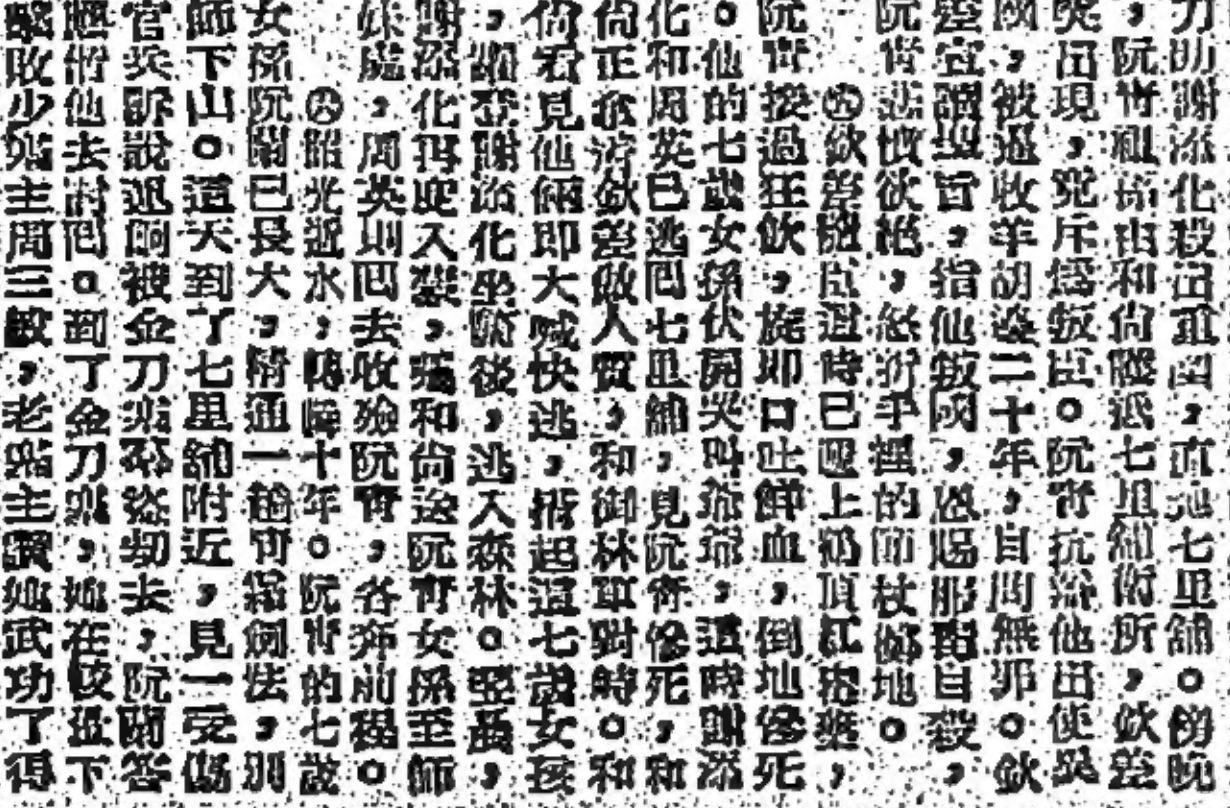 力助謝添化殺出重圍，直 七里舖。傍晚
，阮青祖孫由和尚護 七里舖衛所，欽差
突出現，咒斥為叛臣。阮青抗辯他出使
國，被逼牧羊胡邊二十年，自問無邪。欽
差宣讀聖旨，指他叛國，恩賜 自殺，
阮青悲憤欲絕， 折手裡的節杖擲地。
欽差 臣這時已 上 頂紅
阮青接過狂飲，旋即口吐鮮血，倒地慘死
。他的七歲女孫伏屍哭叫爺爺，這時謝添
化和周英已逃回七里舖，見阮青慘死，和
尚正 欽差做人質，和御林軍對峙。和
尚看見他倆即大喊快逃，揹起這七歲女孩
，躍登謝添化坐騎後，逃入森林。翌晨，
謝添化再度入獄，瘤和尚送阮青女孫至師
妹處，周英則回去收殮阮青，各奔前程。
㊅韶光逝水，轉瞬十年。阮青的七歲
女孫阮蘭已長大，精通一 青霜劍法，別
師下山。這天到了七里舖附近，見一受傷
官兵訴說 餉被金刀寨 盜劫去，阮蘭答
應替他去討回。到了金刀寨，她在 下
擊敗少寨主周三敏，老寨主讚她武功了得